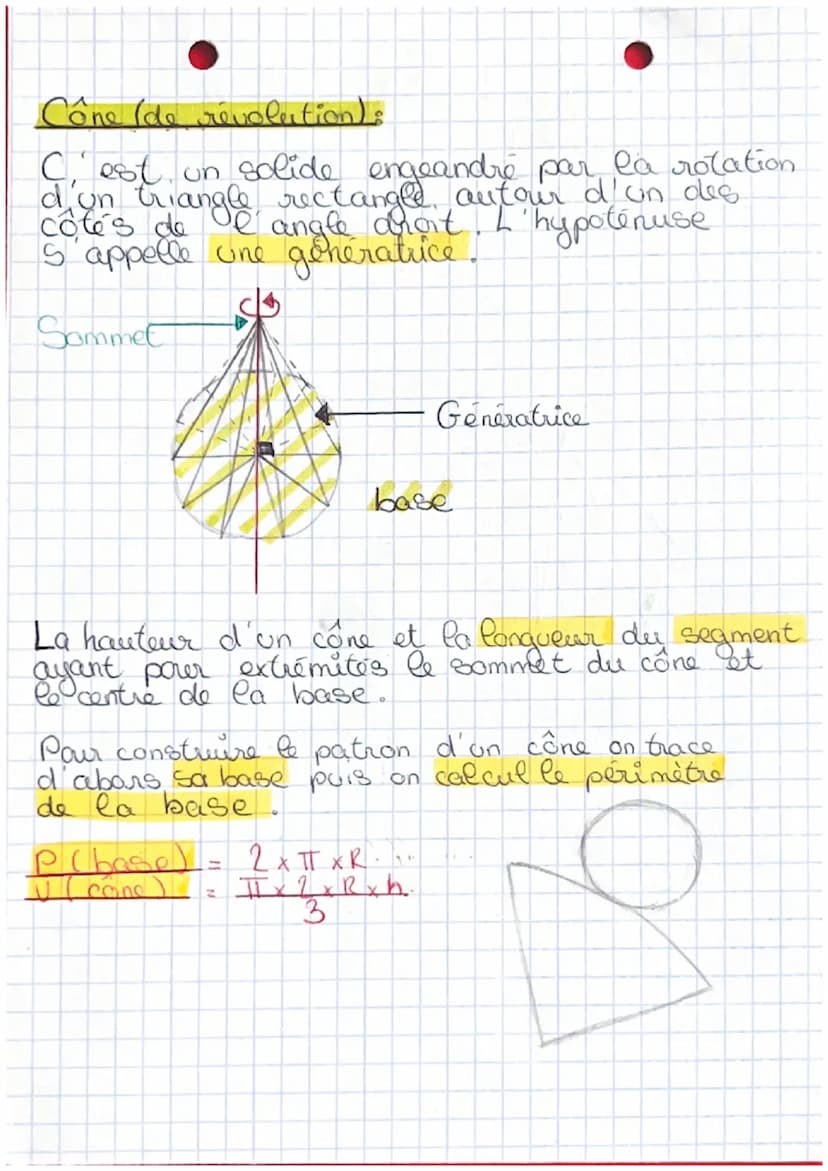 Cône (de révolution) :
C'est un solide engeandré par la rotation
d'un triangle rectangle autour d'un des
côtés de l'angle droit. L'hypoténuse
s'appelle une génératrice.
Sommet
Génératrice
base
La hauteur d'un cône et la longueur du segment
ayant pour extrémités le sommet du cône et
le centre de la base.
Pour construire le patron d'un cône on trace
d'abors sa base puis on calcul le périmètre
de la base.
P(base) = 2 x π x R
V(cône) = π x 2 x R x h.
3